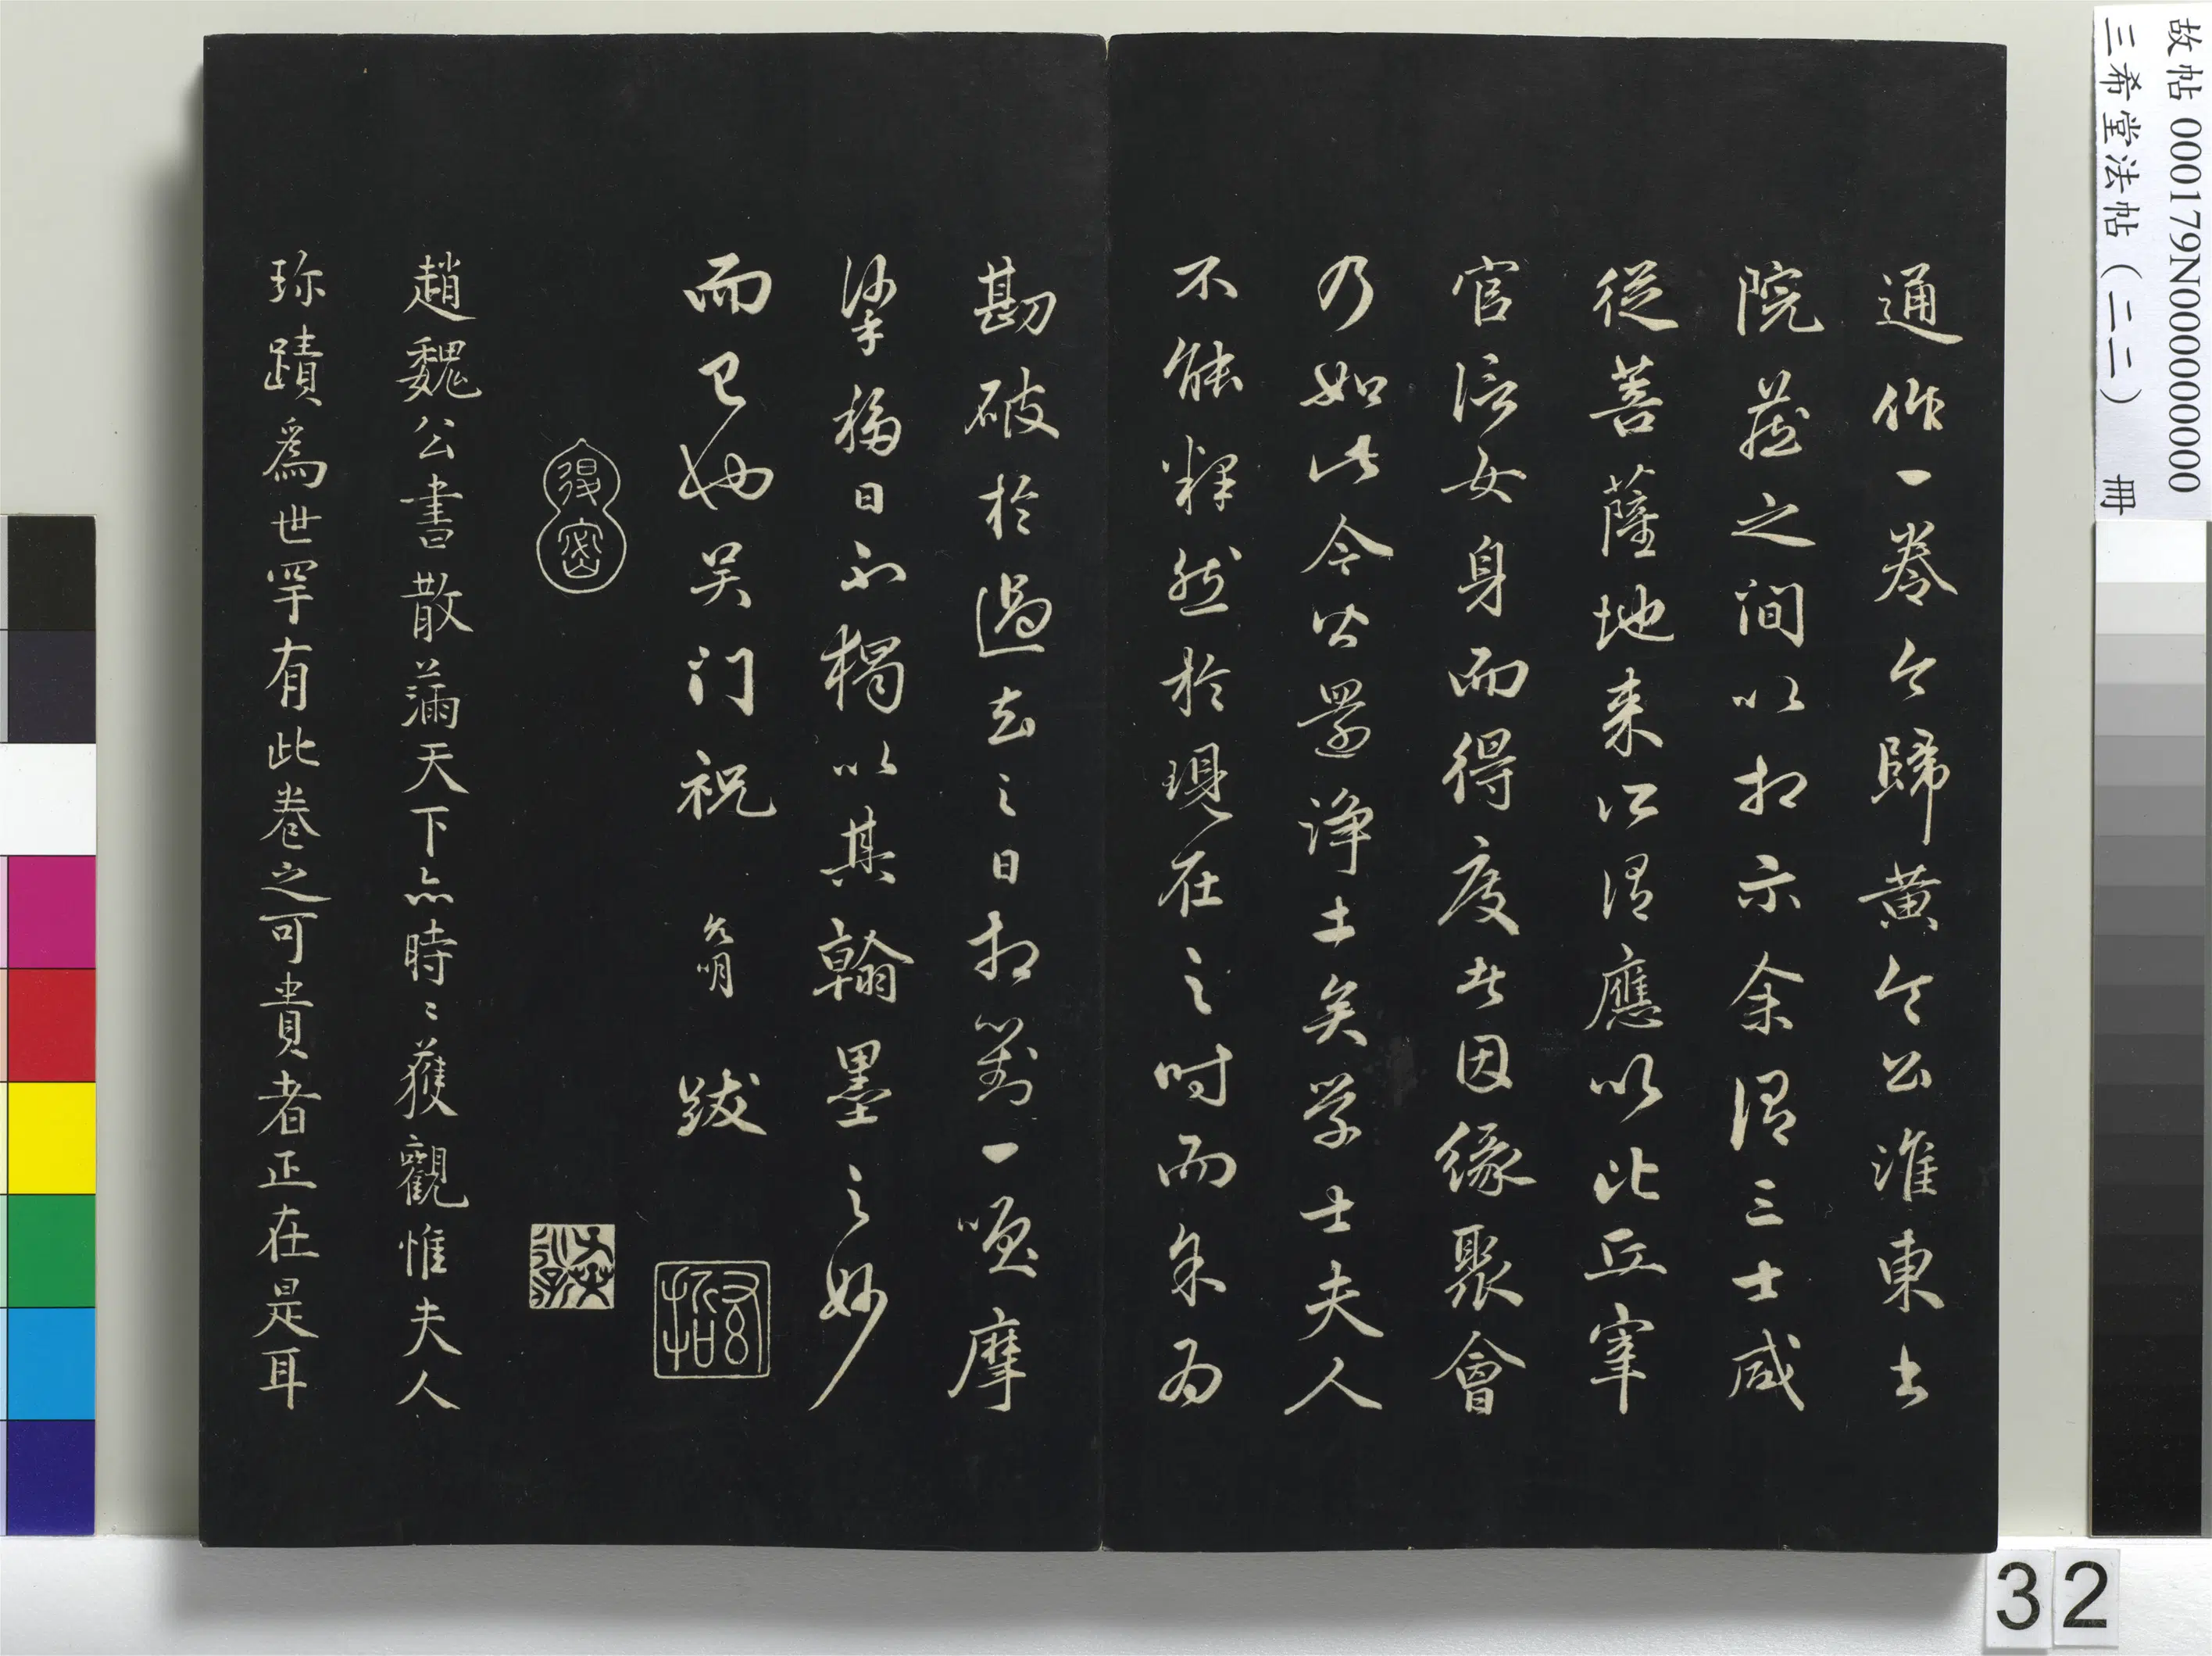 故帖 000179N000000000
三希堂法帖（二二） 冊
通作一卷今歸黃令公淮東書
院茲之間以相示余謂三士咸
從菩薩地来所謂應以比丘宰
官信女身而得度者因緣聚會
乃如此今皆還淨土矣学士夫人
不能釋然於現在之時而余為
勘破於過去之日相對一嘆摩
挲移日不獨以其翰墨之妙
而已也吴门祝 允明 跋
趙魏公書散滿天下亦時〻獲觀惟夫人
珎蹟爲世罕有此卷之可貴者正在是耳
32